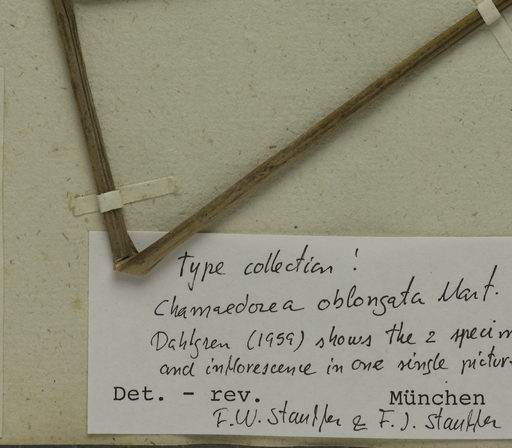 Type collection !
Chamaedorea oblongata Mart.
Dahlgren (1959) shows the 2 specim
and inflorescence in one single pictur
Det. - rev. München
F.W. Stauffer & F. J. Stauffer